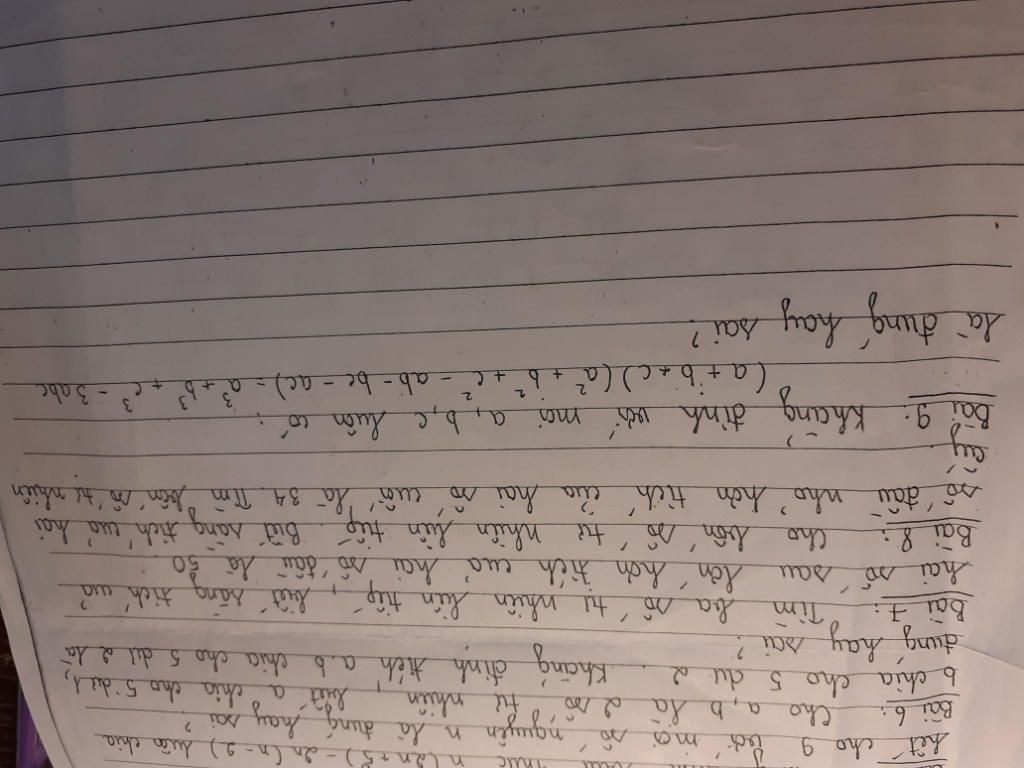 n(2n+5) - 2n(n-2) luôn chia
hết cho 9 với mọi số nguyên n là đúng hay sai?
Bài 6: Cho a, b là 2 số tự nhiên, biết a chia cho 5 dư 1,
b chia cho 5 dư 2. Khẳng định tích a.b chia cho 5 dư 2 là
đúng hay sai?
Bài 7: Tìm ba số tự nhiên liên tiếp, biết rằng tích của
hai số sau lớn hơn tích của hai số đầu là 50
Bài 8: Cho bốn số tự nhiên liên tiếp. Biết rằng tích của hai
số đầu nhỏ hơn tích của hai số cuối là 34. Tìm bốn số tự nhiên
ấy.
Bài 9: Khẳng định với mọi a, b, c luôn có:
(a+b+c)(a²+b²+c²-ab-bc-ac)=a³+b³+c³-3abc
là đúng hay sai?